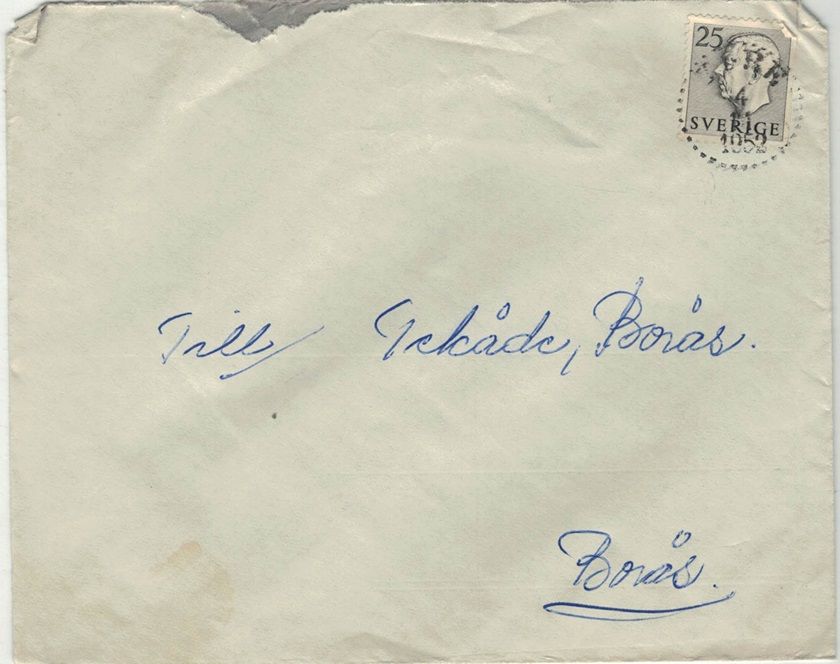 25
SVERIGE
4
1952
Till Tekåde, Borås.
Borås.